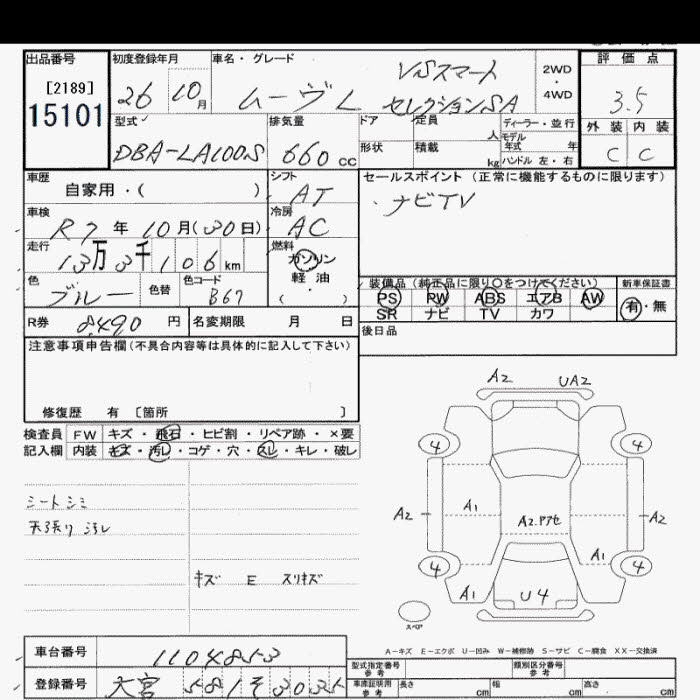 出品番号
[2189]
15101
初度登録年月
26 10月
車名・グレード
ムーヴL VSスマート
セレクションSA
2WD
・
4WD
評価点
3.5
外装 内装
C C
型式
DBA-LA100S
排気量
660 cc
ドア
形状
定員 人
積載 kg
ディーラー・並行
モデル
年式 年
ハンドル 左・右
車歴
自家用・( )
シフト
AT
セールスポイント(正常に機能するものに限ります)
・ナビTV
車検
R7年10月(30日)
冷房
AC
走行
13万3千106km
燃料
ガソリン
軽・油
・( )
色
ブルー
色替
色コード
B67
装備品(純正品に限り○をつけてください)
PS PW ABS エアB AW
SR ナビ TV カワ
新車保証書
有・無
R券 8,490 円
名変期限 月 日
後日品
注意事項申告欄(不具合内容等は具体的に記入して下さい)
修復歴 有 〔箇所 〕
検査員 FW キズ・飛石・ヒビ割・リペア跡・×要
記入欄 内装 キズ・汚レ・コゲ・穴・スレ・キレ・破レ
シートシミ
天張り汚レ
キズ E スリキズ
A2 UA2
4 4
A2 A1 A2.アアセ A2
4 A1 4
A1 U4
スペア
A-キズ E-エクボ U-凹み W-補修跡 S-サビ C-腐食 XX-交換済
車台番号 1104853
登録番号 大宮 581そ3035
型式指定番号
参考
類別区分番号
参考
車庫証明用
参考
長さ cm 幅 cm 高さ cm